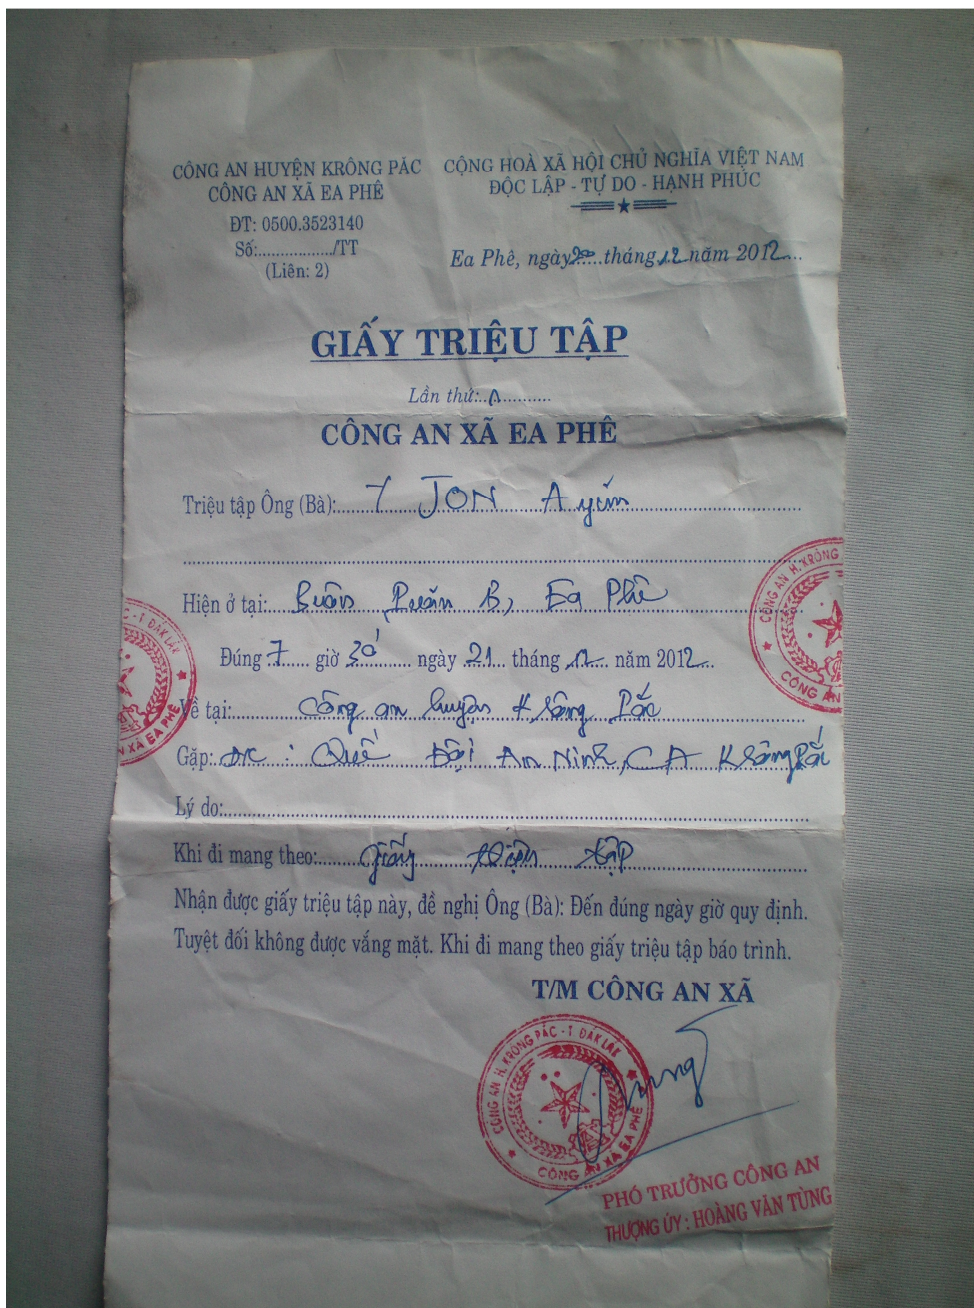 CÔNG AN HUYỆN KRÔNG PĂC
CÔNG AN XÃ EA PHÊ
ĐT: 0500.3523140
Số:................./TT
(Liên: 2)
CỘNG HOÀ XÃ HỘI CHỦ NGHĨA VIỆT NAM
ĐỘC LẬP - TỰ DO - HẠNH PHÚC
Ea Phê, ngày 20 tháng 12 năm 2012
GIẤY TRIỆU TẬP
Lần thứ: 1
CÔNG AN XÃ EA PHÊ
Triệu tập Ông (Bà): Y JON Ayŭn
Hiện ở tại: Buôn Puăn B, Ea Phê
Đúng 7 giờ 30' ngày 21 tháng 12 năm 2012
Về tại: Công an huyện Krông Pắc
Gặp: Đ/c : Quế Đội An Ninh, CA Krông Pắc
Lý do:
Khi đi mang theo: Giấy triệu tập
Nhận được giấy triệu tập này, đề nghị Ông (Bà): Đến đúng ngày giờ quy định.
Tuyệt đối không được vắng mặt. Khi đi mang theo giấy triệu tập báo trình.
T/M CÔNG AN XÃ
CÔNG AN H. KRÔNG PĂC - T ĐĂK LĂK
CÔNG AN XÃ EA PHÊ
Tùng
PHÓ TRƯỞNG CÔNG AN
THƯỢNG ÚY : HOÀNG VĂN TÙNG
CÔNG AN H. KRÔNG
CÔNG AN
C - T ĐĂK LĂK
AN XÃ EA PHÊ